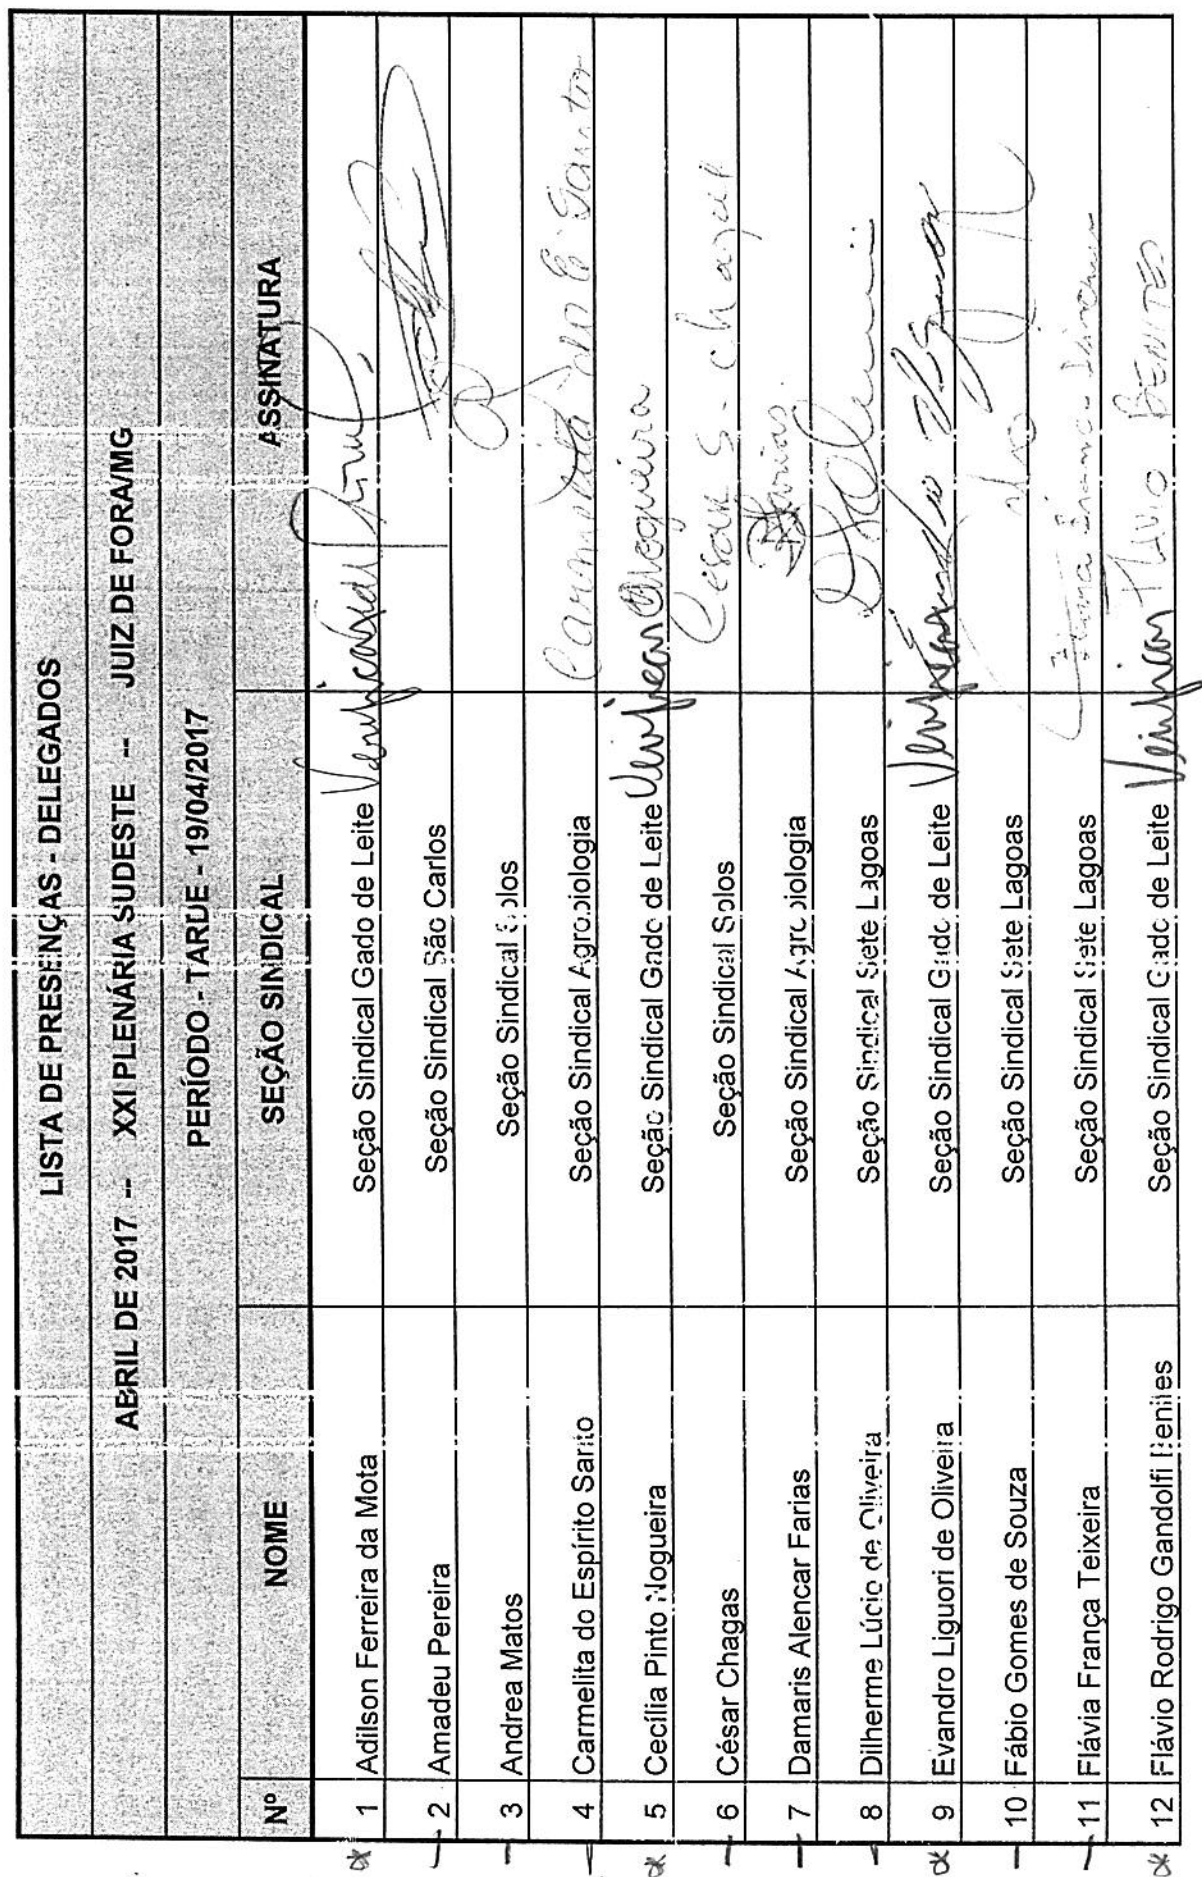 LISTA DE PRESENÇAS - DELEGADOS
ABRIL DE 2017 -- XXI PLENÁRIA SUDESTE -- JUIZ DE FORA/MG
PERÍODO - TARDE - 19/04/2017
Nº NOME SEÇÃO SINDICAL ASSINATURA
1 Adilson Ferreira da Mota Seção Sindical Gado de Leite Verificar
2 Amadeu Pereira Seção Sindical São Carlos
3 Andrea Matos Seção Sindical Solos
4 Carmelita do Espírito Santo Seção Sindical Agrobiologia Carmelita do E Santo
5 Cecília Pinto Nogueira Seção Sindical Gado de Leite Verificar Nogueira
6 César Chagas Seção Sindical Solos César S. Chagas
7 Damaris Alencar Farias Seção Sindical Agrobiologia Farias
8 Dilherme Lúcio de Oliveira Seção Sindical Sete Lagoas
9 Evandro Liguori de Oliveira Seção Sindical Gado de Leite Verificar
10 Fábio Gomes de Souza Seção Sindical Sete Lagoas
11 Flávia França Teixeira Seção Sindical Sete Lagoas
12 Flávio Rodrigo Gandolfi Benites Seção Sindical Gado de Leite Verificar FLAVIO BENITES